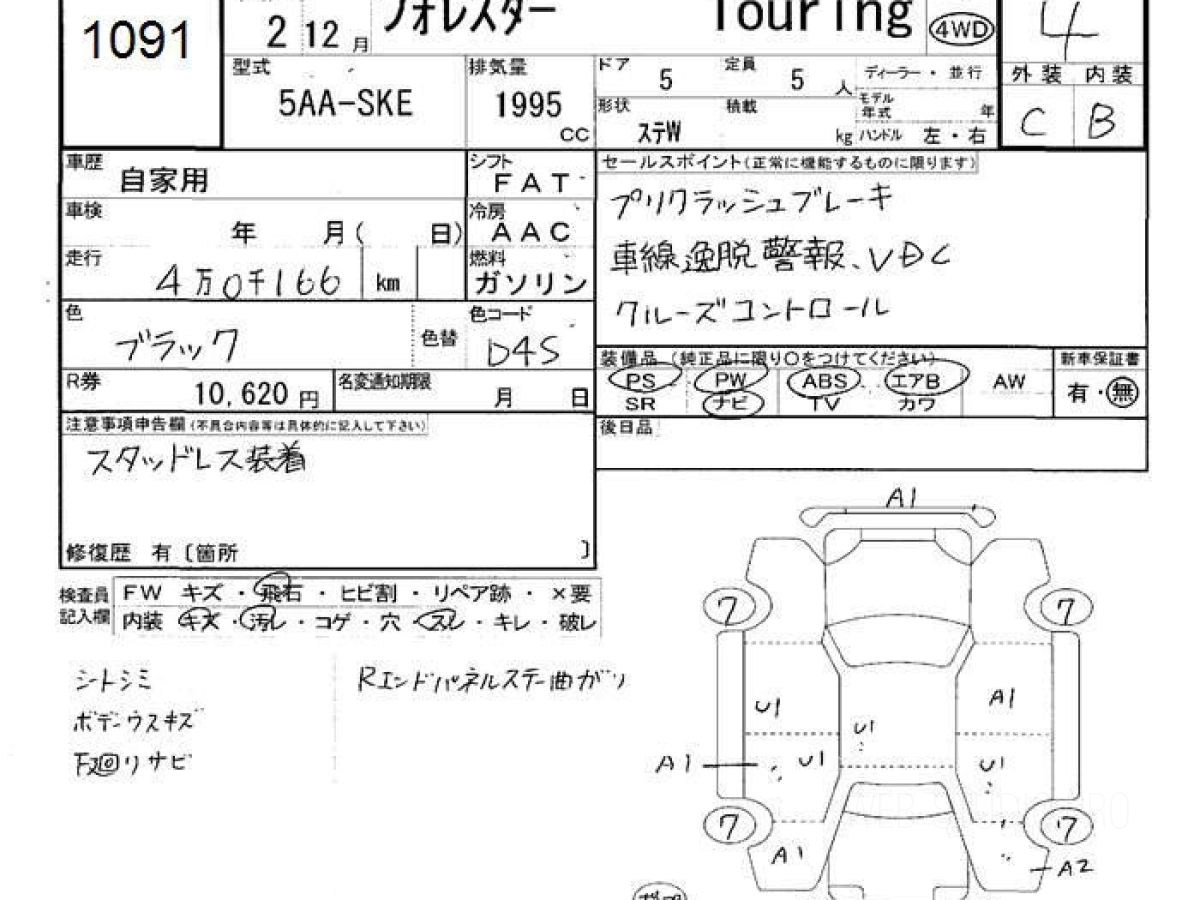 1091
2 12 月
フォレスター
Touring
4WD
4
型式
5AA-SKE
排気量
1995
CC
ドア
5
定員
5
人
ディーラー ・ 並行
外装 内装
C B
形状
ステW
積載
kg
モデル
年式
年
ハンドル 左 ・ 右
車歴
自家用
シフト
FAT
セールスポイント(正常に機能するものに限ります)
プリクラッシュブレーキ
車線逸脱警報、VDC
クルーズコントロール
車検
年 月( 日)
冷房
AAC
走行
4万0千166 km
燃料
ガソリン
色
ブラック
色替
色コード
D4S
装備品 (純正品に限り○をつけてください)
新車保証書
PS PW ABS エアB AW
SR ナビ TV カワ
有・無
R券
10,620 円
名変通知期限
月 日
後日品
注意事項申告欄(不具合内容等は具体的に記入して下さい)
スタッドレス装着
修復歴 有〔箇所 〕
検査員
記入欄
FW キズ ・ 飛石 ・ ヒビ割 ・ リペア跡 ・ ×要
内装 キズ・汚レ・コゲ・穴 ・スレ・キレ・破レ
シトシミ
ボデーウスキズ
下廻リサビ
Rエンドパネルステー曲ガリ
A1
7
7
U1
A1
U1
A1
U1
U1
7
7
A1
A2